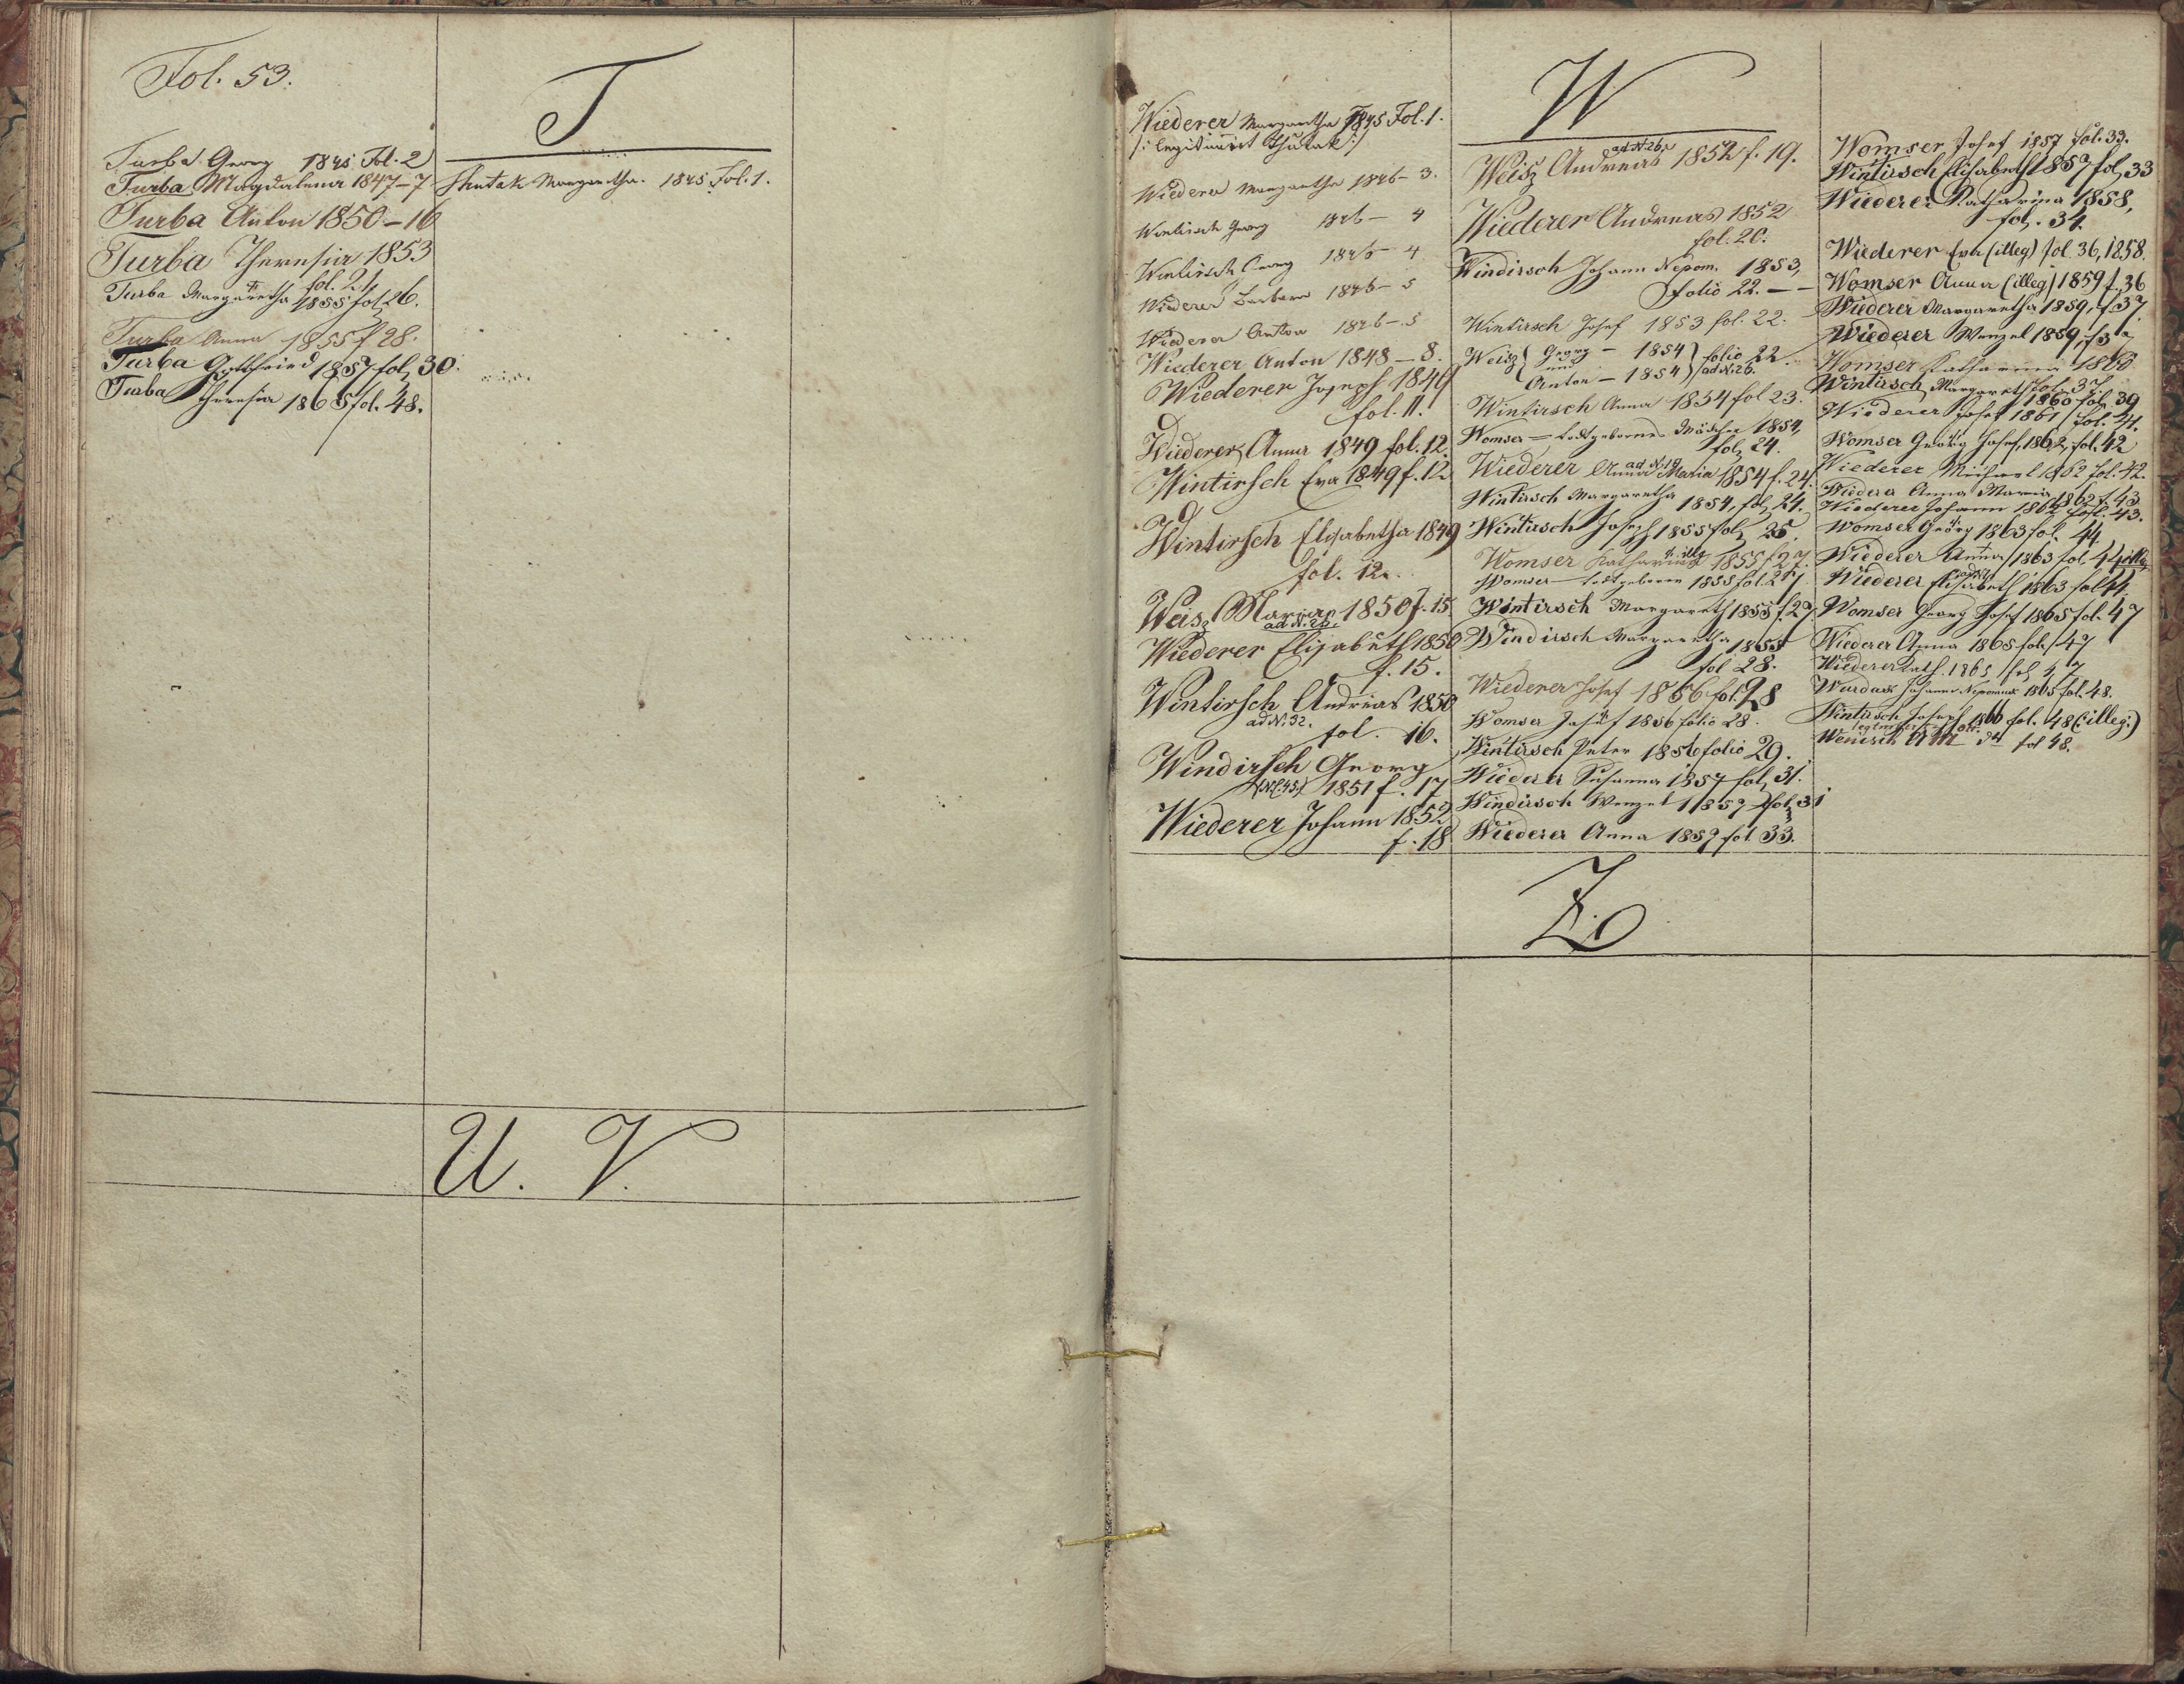 Fol. 53.
T
Turba Georg 1845 Fol. 2
Turba Magdalena 1847–7
Turba Anton 1850–16
Turba Theresia 1853
fol. 21.
Turba Margaretha 1855 fol. 26.
Turba Anna 1855 f 28.
Turba Gottfried 1857 fol. 30.
Turba Theresia 1865 fol. 48.
Thutak Margaretha. 1845 Fol. 1.
U. V.
W
Wiederer Margaretha 1845 Fol. 1.
/: legitimirt Thutak :/
Wiederer Margaretha 1846–3.
Wintirsch Georg 1846–4
Wintirsch Georg 1846–4
Wiederer Barbara 1846–5
Wiederer Anton 1846–5
Wiederer Anton 1848–8.
Wiederer Joseph 1849
fol. 11.
Wiederer Anna 1849 fol. 12.
Wintirsch Eva 1849 f. 12
Wintirsch Elisabetha 1849
fol. 12.
Weisz 1850 f. 15
ad N. 26.
Wiederer Elisabeth 1850
f. 15.
Wintirsch Andreas 1850
ad N. 32. fol. 16.
Windirsch Georg
1851 f. 17
Wiederer Johann 1852
f. 18
ad N 26.
Weisz Andreas 1852 f. 19.
Wiederer Andreas 1852
fol. 20.
Windirsch Johann Nepom. 1853,
Folio 22. — —
Wintirsch Josef 1853 fol. 22.
Weisz { Georg – 1854 } folio 22.
und
Anton – 1854 } ad N. 26.
Wintirsch Anna 1854 fol 23.
Womser – todtgebornes Mädchen 1854,
fol. 24.
ad N. 19
Wiederer Anna Maria 1854 f. 24.
Wintirsch Margaretha 1854, fol. 24.
Wintirsch Joseph 1855 fol. 25.
Womser Katharina illeg 1855 f 27.
Womser – todtgeboren 1855 fol. 27.
Wintirsch Margareth 1855 f. 27
Windirsch Margaretha 1855
fol 28.
Wiederer Josef 1856 fol. 28
Womser Josef 1856 folio 28.
Wintirsch Peter 1856 folio 29.
Wiederer Susanna 1857 fol. 31.
Windirsch Wenzel 1857 fol. 31
Wiederer Anna 1857 fol 33.
Womser Josef 1857 fol. 33.
Wintirsch Elisabeth 1857 fol. 33
Wiederer Katharina 1858,
fol. 34.
Wiederer Eva (illeg) fol. 36, 1858.
Womser Anna (illeg) 1859 f. 36
Wiederer Margaretha 1859, f 37
Wiederer Wenzel 1859, f 37
Womser Katharina 1860
fol. 37.
Wintirsch Margareth 1860 fol. 39
Wiederer Josef 1861 fol. 41.
Womser Georg Josef, 1862, fol. 42
Wiederer Michael 1862 fol. 42.
Wiederer Anna Maria 1862 f. 43
Wiederer Johann 1862 fol. 43.
Womser Georg 1863 fol. 44
Wiederer Anna 1863 fol 44 illeg
Wiederer Elisabeth 1863 fol 44.
Womser Georg Josef 1865 fol. 47
Wiederer Anna 1865 fol. 47
Wiederer Kath. 1865 fol. 47
Johann Nepomuk 1865 fol. 48.
Wintirsch Joseph 1866 fol. 48 (: illeg :)
fol 48.
Z.